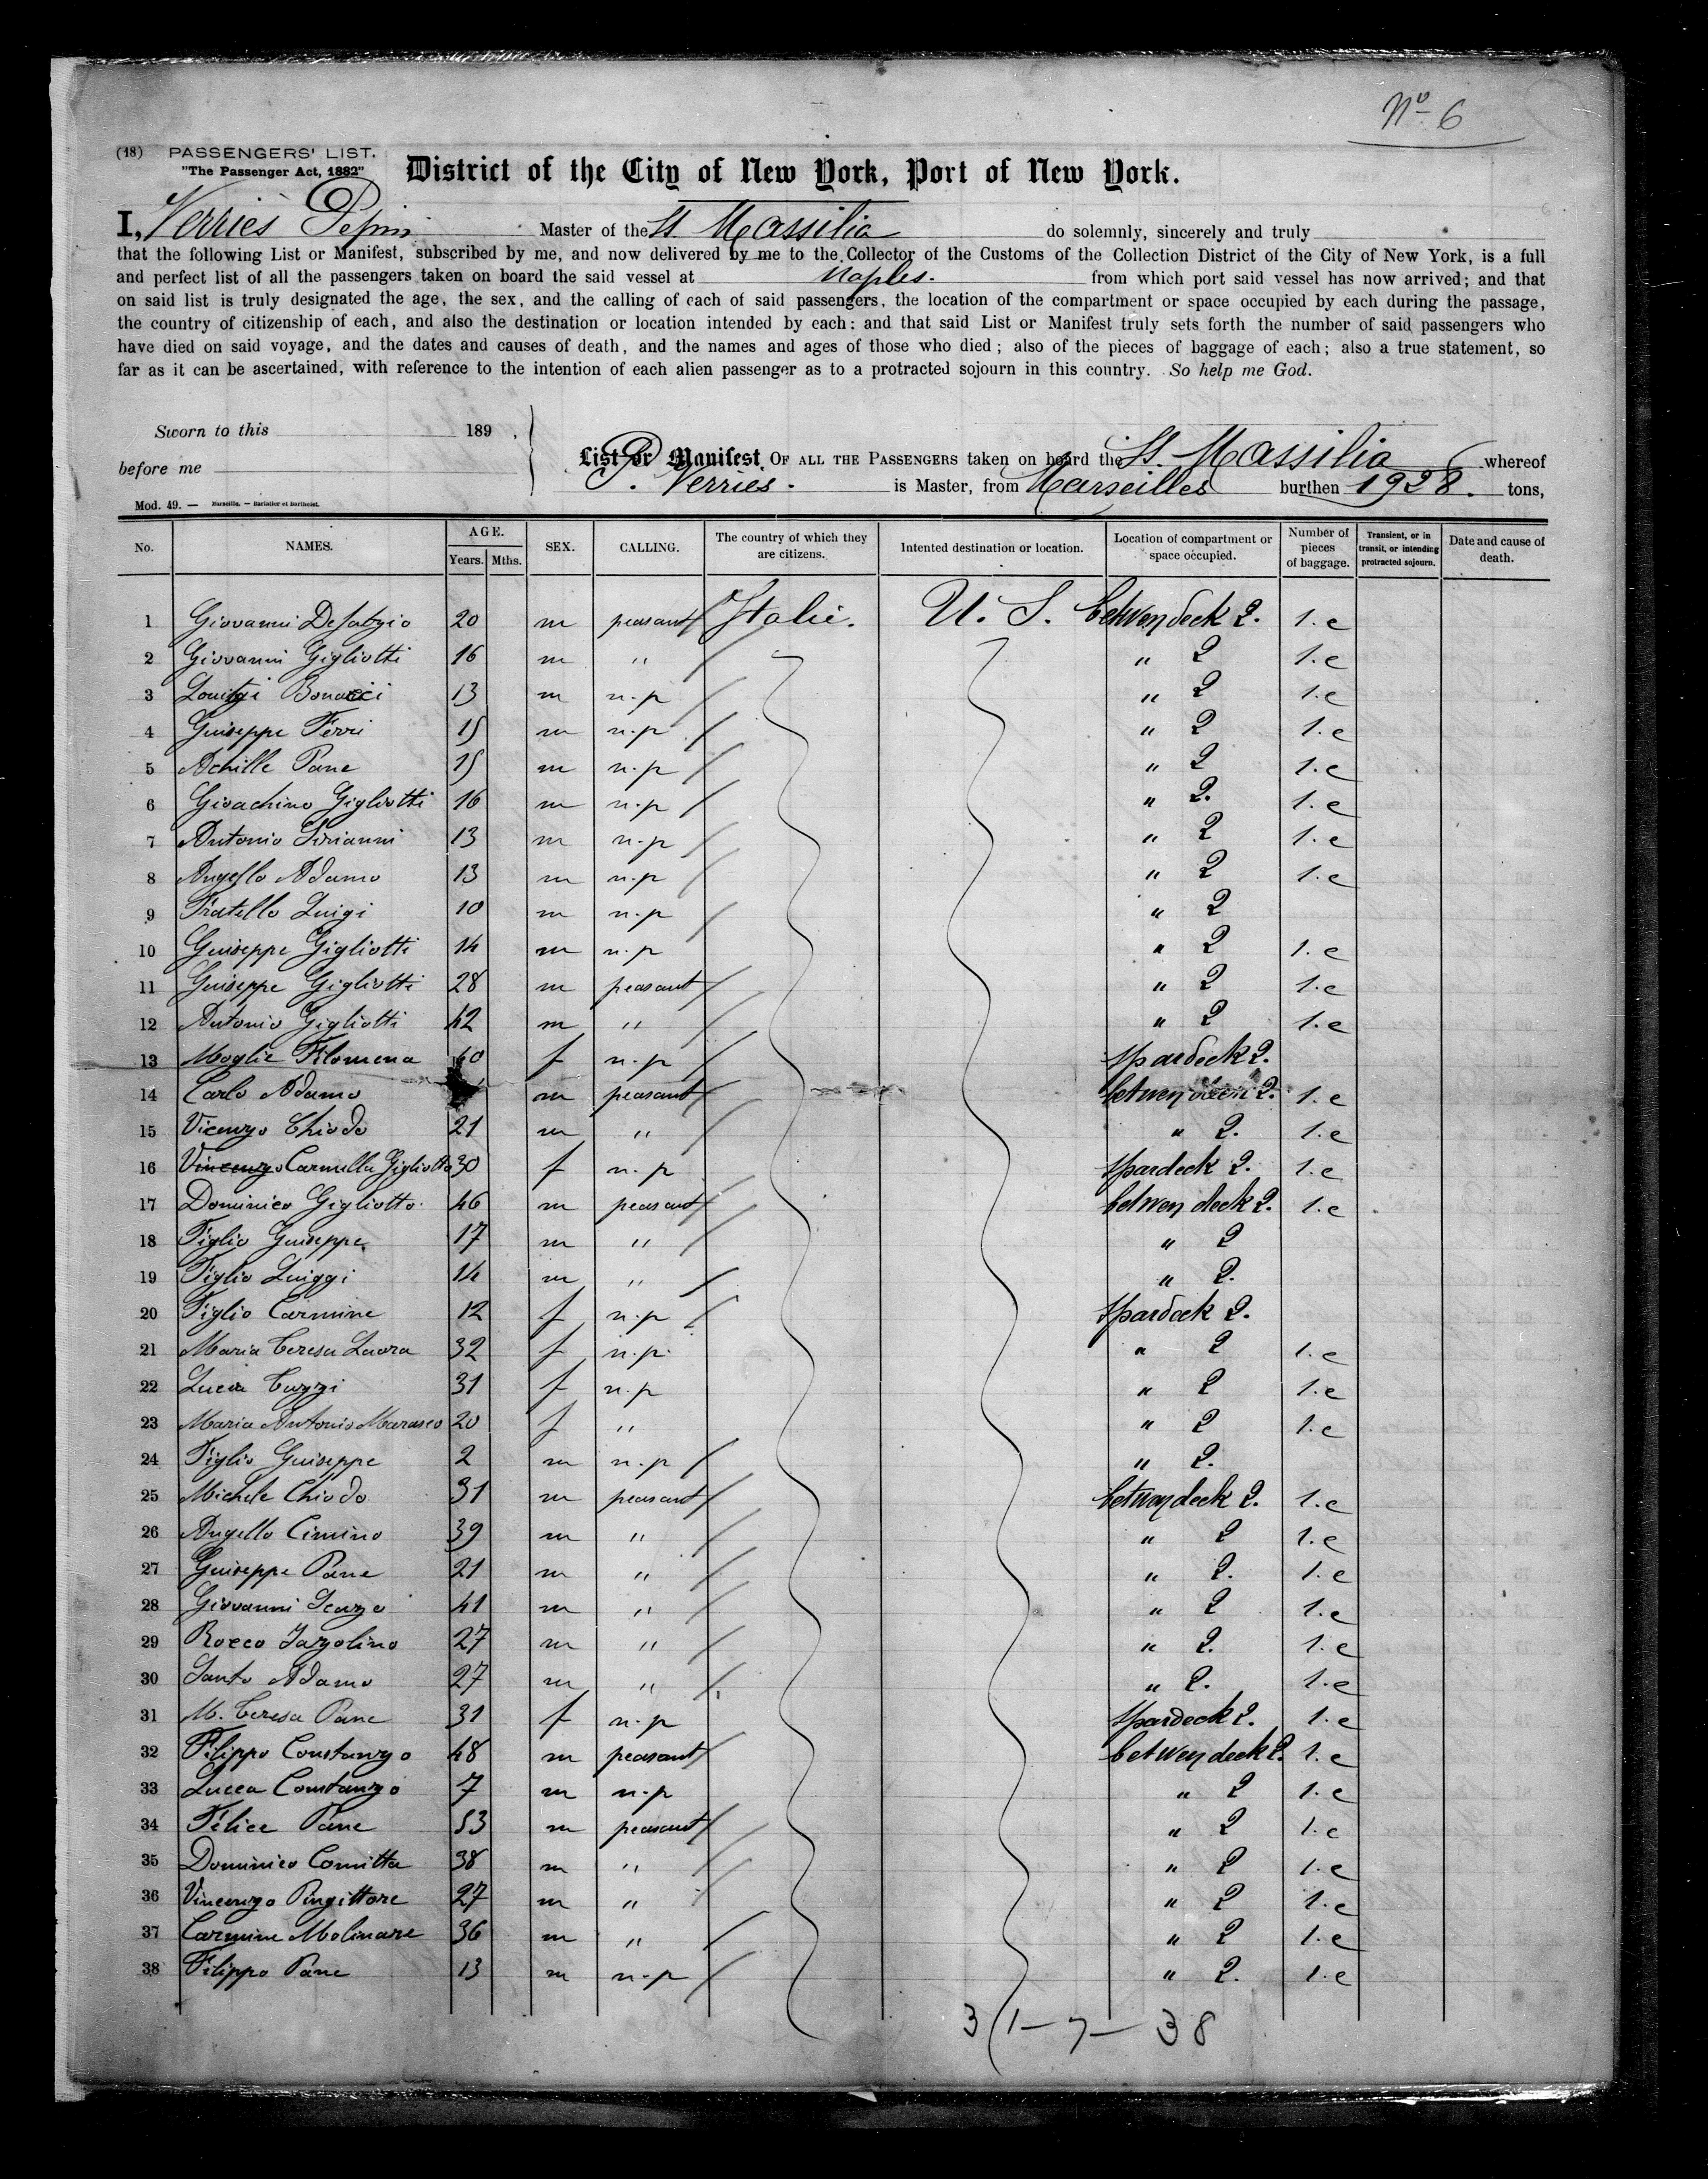 Nº 6
(18) PASSENGERS' LIST.
"The Passenger Act, 1882"
District of the City of New York, Port of New York.
I, Verries Pepin Master of the St. Massilia do solemnly, sincerely and truly
that the following List or Manifest, subscribed by me, and now delivered by me to the Collector of the Customs of the Collection District of the City of New York, is a full
and perfect list of all the passengers taken on board the said vessel at Naples. from which port said vessel has now arrived; and that
on said list is truly designated the age, the sex, and the calling of each of said passengers, the location of the compartment or space occupied by each during the passage,
the country of citizenship of each, and also the destination or location intended by each: and that said List or Manifest truly sets forth the number of said passengers who
have died on said voyage, and the dates and causes of death, and the names and ages of those who died; also of the pieces of baggage of each; also a true statement, so
far as it can be ascertained, with reference to the intention of each alien passenger as to a protracted sojourn in this country. So help me God.
Sworn to this 189 .
before me
List or Manifest OF ALL THE PASSENGERS taken on board the St. Massilia whereof
P. Verries. is Master, from Marseilles burthen 1928. tons,
Mod. 49. — Marseille. — Barlatier et Barthelet.
No. NAMES. AGE. Years. Mths. SEX. CALLING. The country of which they are citizens. Intented destination or location. Location of compartment or space occupied. Number of pieces of baggage. Transient, or in transit, or intending protracted sojourn. Date and cause of death.
1 Giovanni Defabzio 20 m peasant Italie. U. S. betwen deck 2. 1.c
2 Giovanni Gigliotti 16 m " " 2 1.c
3 Bonacci 13 m n.p " 2 1.c
4 Guiseppe Ferri 15 m n.p " 2 1.c
5 Achille Pane 15 m n.p " 2 1.c
6 Gioachino Gigliotti 16 m n.p " 2. 1.c
7 Antonio Sirianni 13 m n.p " 2 1.c
8 Angello Adamo 13 m n.p " 2 1.c
9 Fratello Luigi 10 m n.p " 2
10 Guiseppe Gigliotti 14 m n.p " 2 1.c
11 Guiseppe Gigliotti 28 m peasant " 2 1.c
12 Antonio Gigliotti 42 m " " 2 1.c
13 Moglie Filomena 40 f n.p spardeck 2.
14 Carlo Adamo m peasant betwen deck 2. 1.c
15 Vicenzo Chiodo 21 m " " 2. 1.c
16 Vincenzo Carmella Gigliotto 30 f n.p spardeck 2. 1.c
17 Dominico Gigliotto 46 m peasant betwen deck 2. 1.c
18 Figlio Guiseppe 17 m " " 2
19 Figlio Luiggi 14 m " " 2.
20 Figlio Carmine 12 f n.p spardeck 2.
21 Maria Teresa Laura 32 f n.p. " 2 1.c
22 Lucia Cuzzi 31 f n.p " 2 1.c
23 Maria Antonio Marasco 20 f " " 2 1.c
24 Figlio Guiseppe 2 m n.p " 2.
25 Michele Chiodo 31 m peasant betwen deck 2. 1.c
26 Angello Cimino 39 m " " 2 1.c
27 Guiseppe Pane 21 m " " 2. 1.c
28 Giovanni Scarzo 41 m " " 2 1.c
29 Rocco Jazolino 27 m " " 2. 1.c
30 Santo Adamo 27 m " " 2. 1.c
31 M. Teresa Pane 31 f n.p spardeck 2. 1.c
32 Filippo Constanzo 48 m peasant betwen deck 2. 1.c
33 Lucca Constanzo 7 m n.p " 2 1.c
34 Felice Pane 53 m peasant " 2 1.c
35 Dominico Comitta 38 m " " 2 1.c
36 Vincenzo Pingittore 27 m " " 2 1.c
37 Carmine Molinare 36 m " " 2 1.c
38 Filippo Pane 13 m n.p " 2. 1.c
31 — 7 — 38